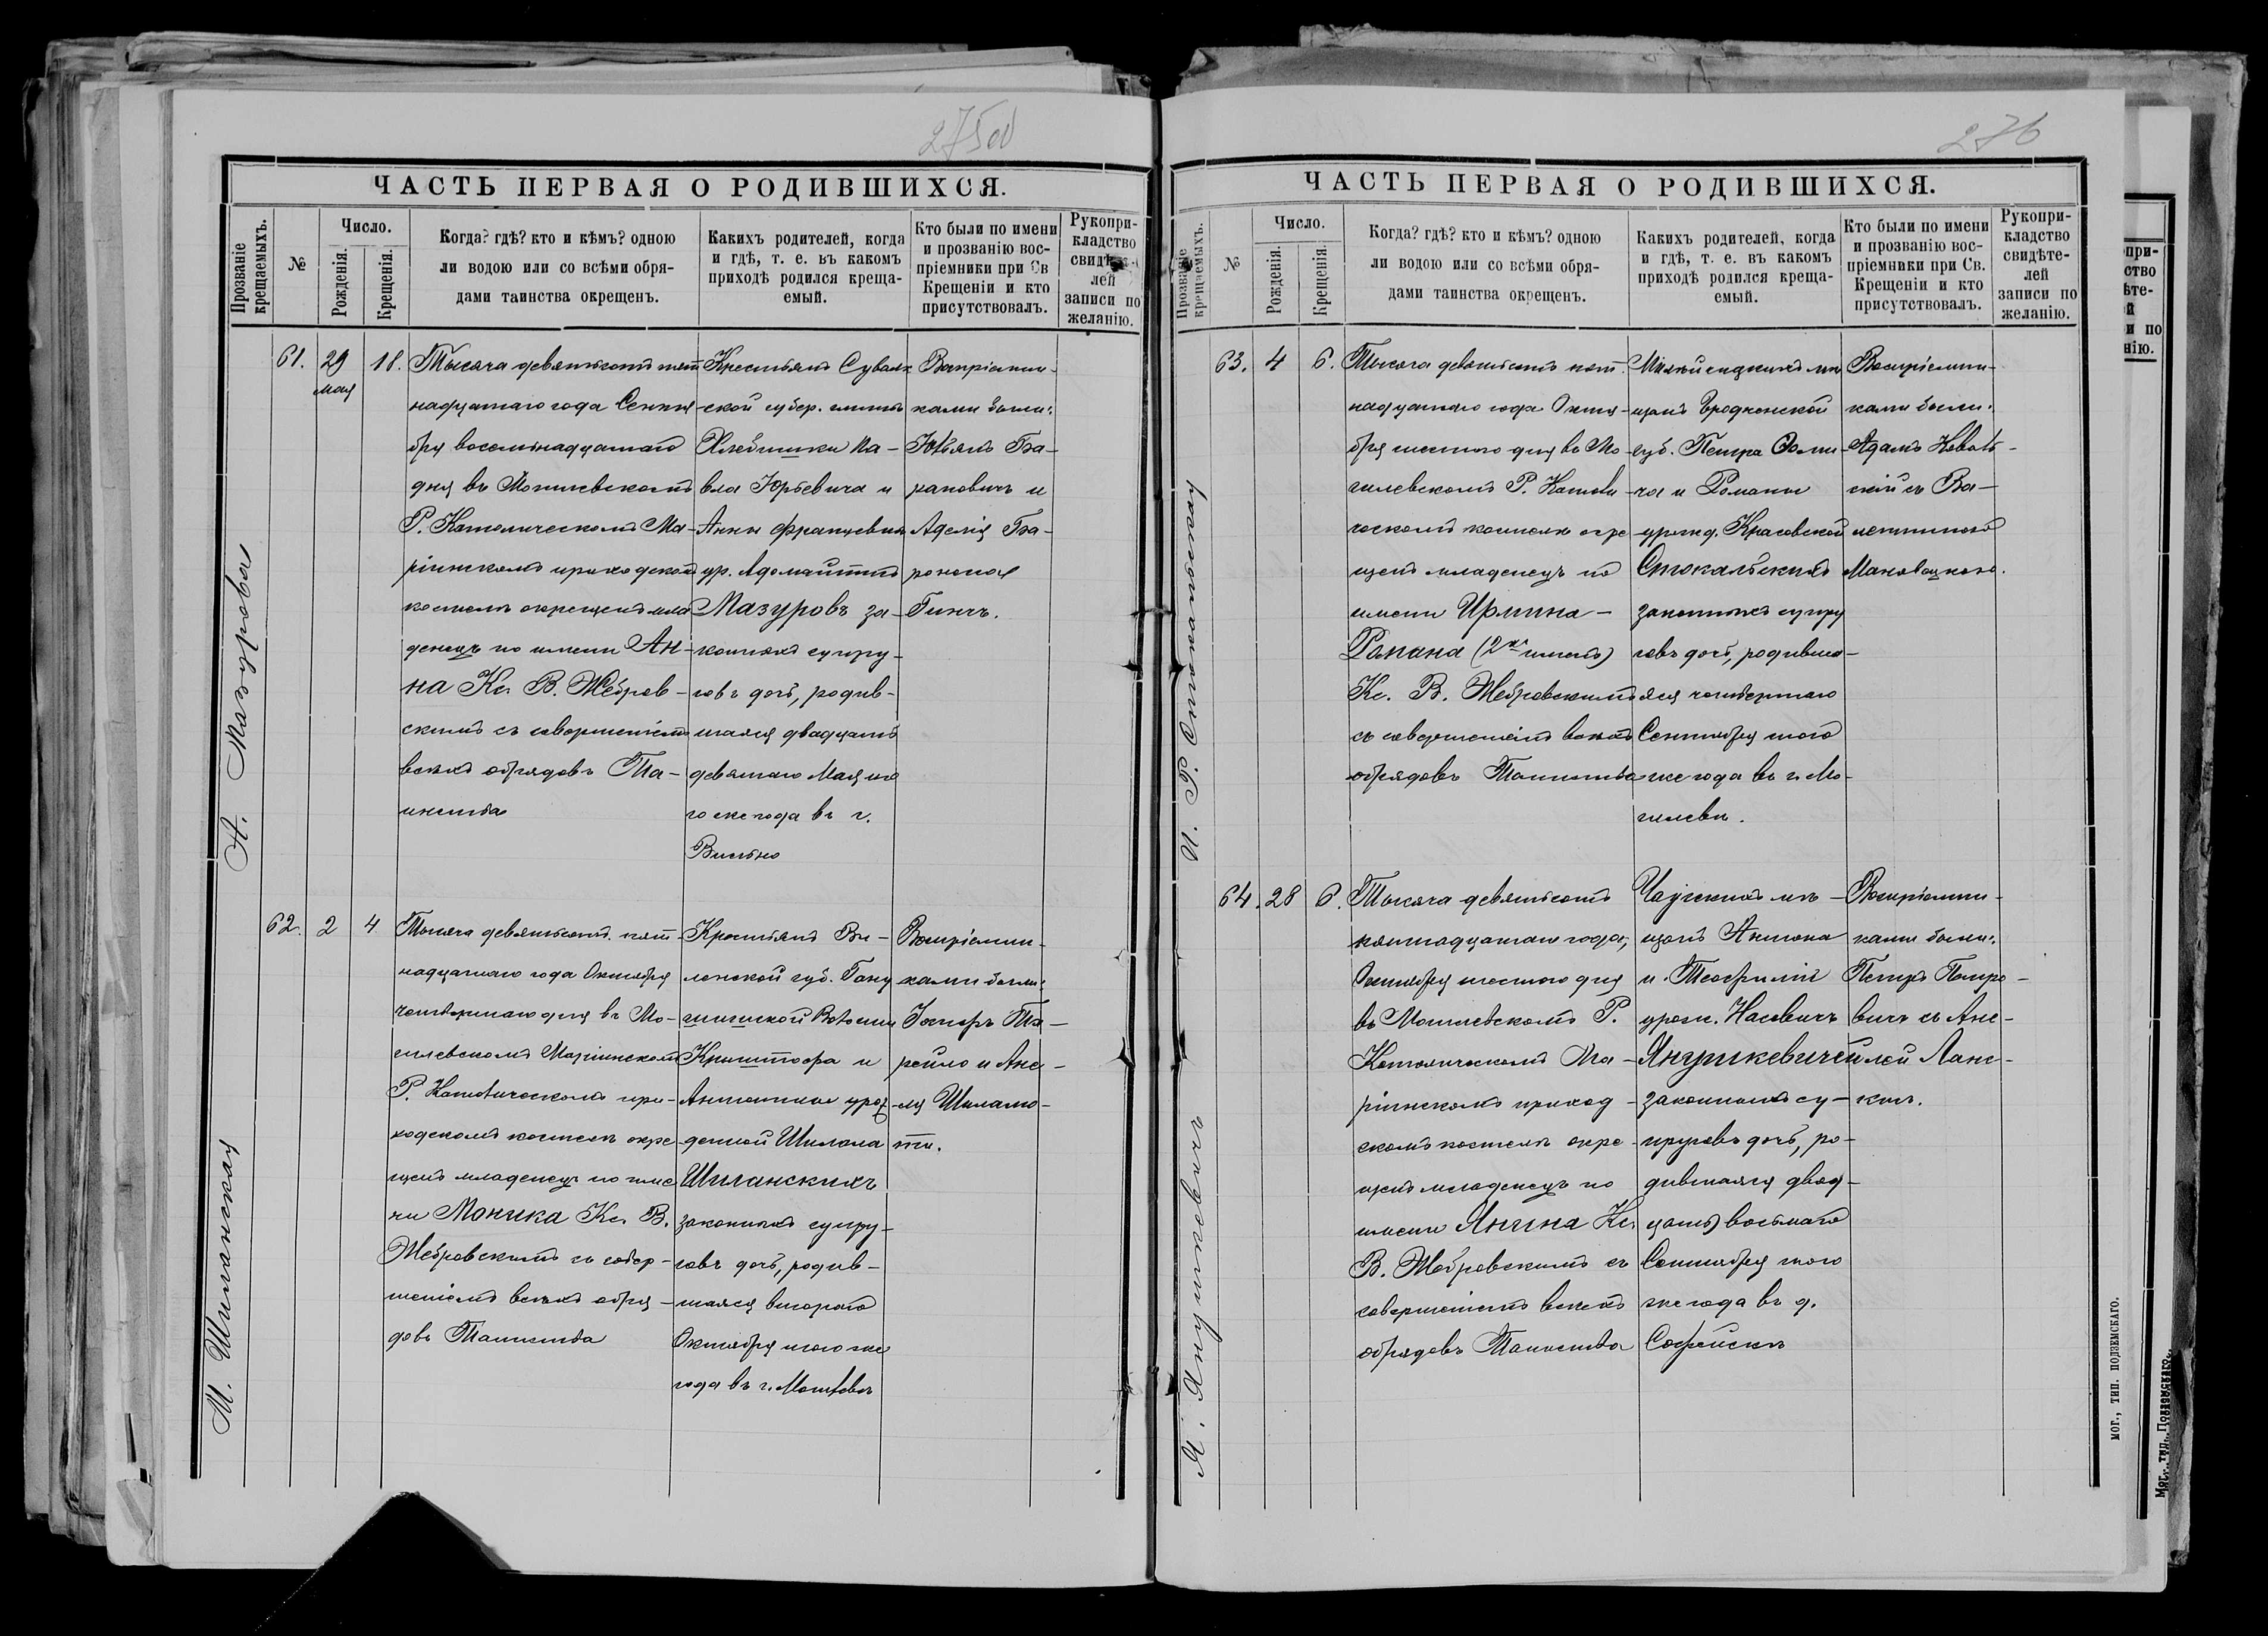 275об
ЧАСТЬ ПЕРВАЯ О РОДИВШИХСЯ.
Прозваніе крещаемыхъ.
№
Число.
Рожденія.
Крещенія.
Когда? гдѣ? кто и кѣмъ? одною
ли водою или со всѣми обря-
дами таинства окрещенъ.
Какихъ родителей, когда
и гдѣ, т. е. въ какомъ
приходѣ родился креща-
емый.
Кто были по имени
и прозванію вос-
пріемники при Св
Крещеніи и кто
присутствовалъ.
Рукопри-
кладство
свидѣте-
лей
записи по
желанію.
А. Мазурова
61.
29
мая
18.
Тысяча девятьсотъ пят-
надцатаго года Сентя-
бря восемнадцатаго
дня въ Могилевскомъ
Р. Католическомъ Ма-
ріинскомъ приходскомъ
костелѣ окрещенъ мла
денецъ по имени Ан-
на Кс. В. Жебров-
скимъ съ совершеніемъ
всѣхъ обрядовъ Та-
инства
Крестьянъ Сувалк
ской губер. гмины
Хлебишки Па-
вла Юрьевича и
Анны Францевны
ур. Адомайтисъ
Мазуровъ за-
конныхъ супру-
говъ дочь, родив-
шаяся двадцать
девятаго Мая то
го же года въ г.
Вильно
Воспріемни-
ками были:
Юльянъ Ба-
рановичъ и
Аделія Ба-
роноса
Гинчъ.
М. Шиланская
62.
2
4
Тысяча девятьсотъ пят-
надцатаго года Октября
четвертаго дня въ Мо-
гилевскомъ Маріинскомъ
Р. Католическомъ при-
ходскомъ костелѣ окре
щенъ младенецъ по име
ни Моника Кс. В.
Жебровскимъ съ совер-
шеніемъ всѣхъ обря-
довъ Таинства
Крестьянъ Ви-
ленской губ. Гану
шишской Волости
Криштофа и
Антонины урож
денной Шилала
Шиланскихъ
законныхъ супру-
говъ дочь, родив-
шаяся второго
Октября того же
года въ г. Могилевѣ
Воспріемни-
ками были:
рейло и Ане-
ля Шилало-
ти.
276
ЧАСТЬ ПЕРВАЯ О РОДИВШИХСЯ.
Прозваніе крещаемыхъ.
№
Число.
Рожденія.
Крещенія.
Когда? гдѣ? кто и кѣмъ? одною
ли водою или со всѣми обря-
дами таинства окрещенъ.
Какихъ родителей, когда
и гдѣ, т. е. въ какомъ
приходѣ родился креща-
емый.
Кто были по имени
и прозванію вос-
пріемники при Св.
Крещеніи и кто
присутствовалъ.
Рукопри-
кладство
свидѣте-
лей
записи по
желанію.
И. Р. Стокальская
63.
4
6.
Тысяча девятьсотъ пят-
надцатаго года Октя-
бря шестого дня въ Мо-
гилевскомъ Р. Католи-
ческомъ костелѣ окре
щенъ младенецъ по
имени Ирмина-
Романа (2хъ именъ)
Кс. В. Жебровскимъ
съ совершеніемъ всѣхъ
обрядовъ Таинства
мѣ
щанъ Гродненской
губ. Петра Фоми-
ча и Романы
урожд. Красовской
Стокальскихъ
законныхъ супру
говъ дочь, родивша-
яся четвертаго
Сентября того
же года въ г. Мо-
гилевѣ.
Воспріемни-
ками были:
Адамъ Коваль-
скій съ Ва-
лентиной
Маковецкою.
Я. Янушкевичъ
64.
28
6.
Тысяча девятьсотъ
пятнадцатаго года,
Октября шестого дня
въ Могилевскомъ Р.
Католическомъ Ма-
ріинскомъ приход-
скомъ костелѣ окре-
щенъ младенецъ по
имени Янина Кс.
В. Жебровскимъ съ
совершеніемъ всѣхъ
обрядовъ Таинства
Чаусскихъ мѣ-
щанъ Антона
и Теофиліи
урож. Насевичъ
Янушкевичей
законныхъ су-
пруговъ дочь, ро-
дившаяся двад-
цать восьмаго
Сентября того
же года въ д.
Софейскѣ
Воспріемни-
ками были:
Петръ Петро-
вичъ съ Ане-
лей Лане-
кичъ.
МОГ., ТИП. ПОДЗЕМСКАГО.
Мог., тип. Подземскаго.